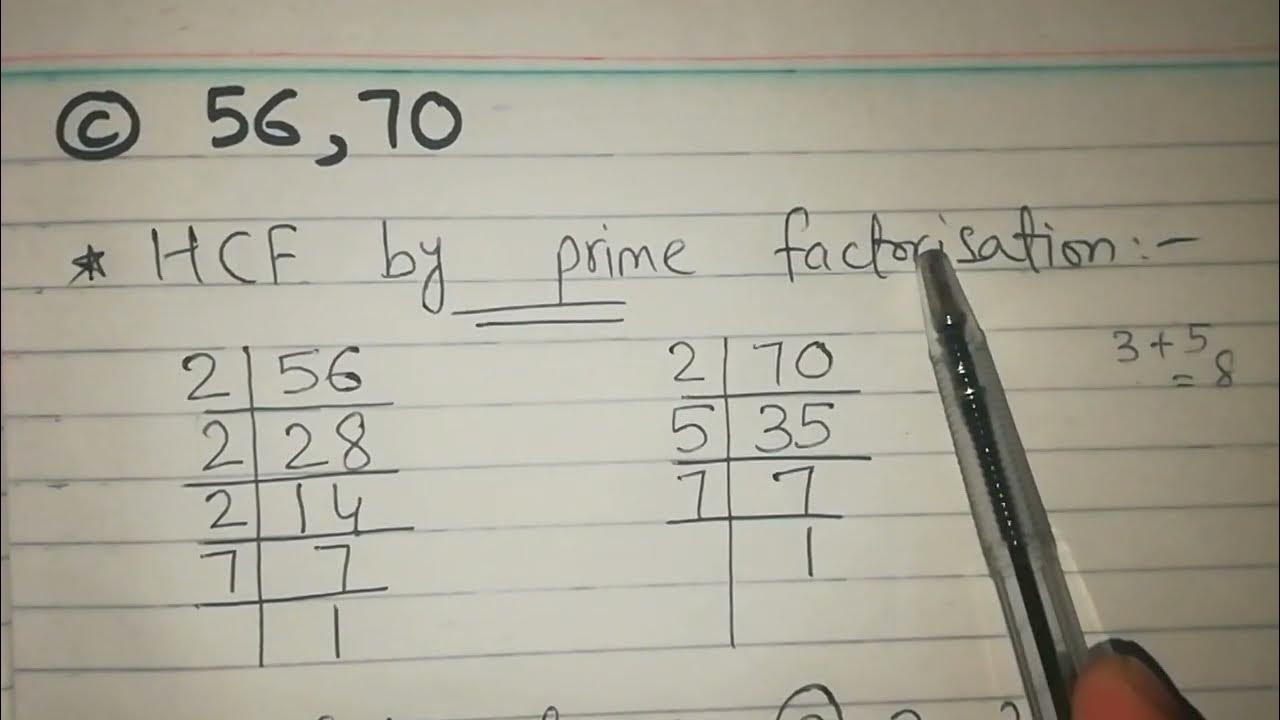 © 56, 70
* HCF by prime factorisation :-
3 + 5
= 8
2 | 56
2 | 28
2 | 14
7 | 7
1
2 | 70
5 | 35
7 | 7
1